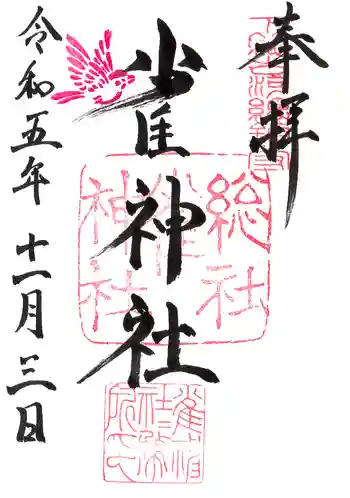 奉拝
雀神社
総社
雀
神社
令和五年 十一月三日